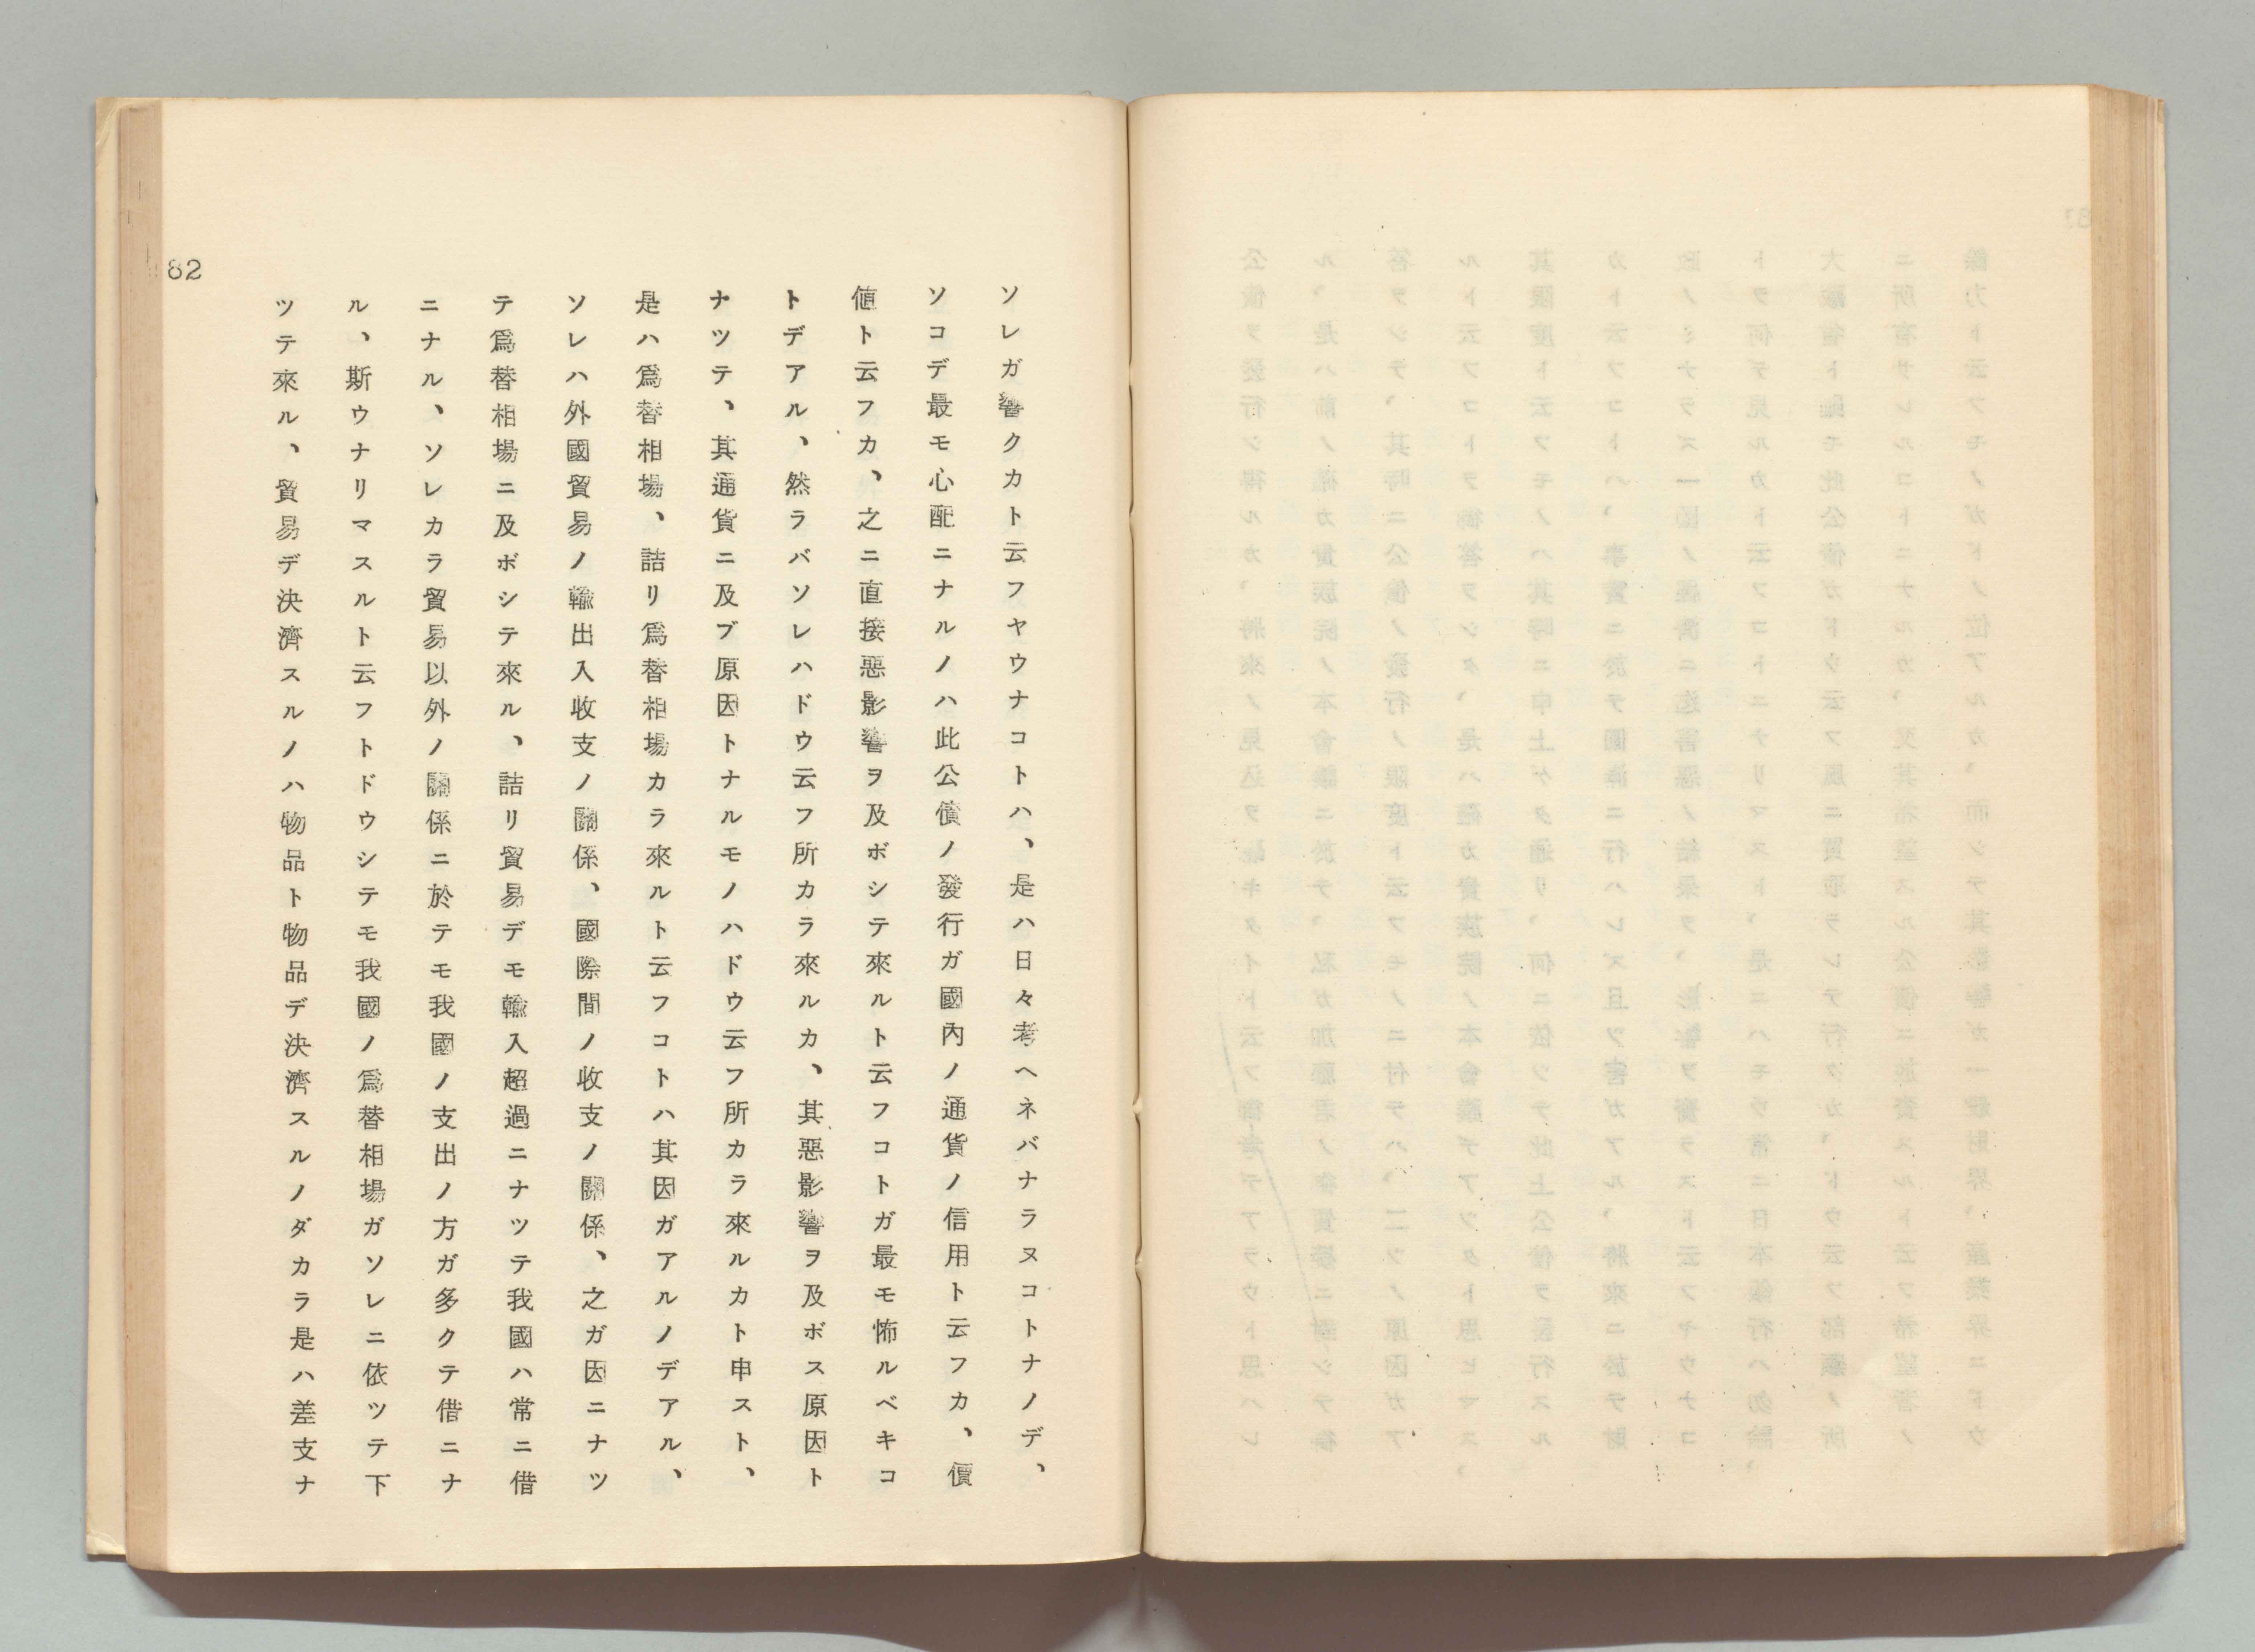 82
ソレガ響クカト云フヤウナコトハ、是ハ日々考ヘネバナラヌコトナノデ、
ソコデ最モ心配ニナルノハ此公債ノ發行ガ國內ノ通貨ノ信用ト云フカ、價
値ト云フカ、之ニ直接惡影響ヲ及ボシテ來ルト云フコトガ最モ怖ルベキコ
トデアル、然ラバソレハドウ云フ所カラ來ルカ、其惡影響ヲ及ボス原因ト
ナツテ、其通貨ニ及ブ原因トナルモノハドウ云フ所カラ來ルカト申スト、
是ハ爲替相場、詰リ爲替相場カラ來ルト云フコトハ其因ガアルノデアル、
ソレハ外國貿易ノ輸出入收支ノ關係、國際間ノ收支ノ關係、之ガ因ニナツ
テ爲替相場ニ及ボシテ來ル、詰リ貿易デモ輸入超過ニナツテ我國ハ常ニ借
ニナル、ソレカラ貿易以外ノ關係ニ於テモ我國ノ支出ノ方ガ多クテ借ニナ
ル、斯ウナリマスルト云フトドウシテモ我國ノ爲替相場ガソレニ依ツテ下
ツテ來ル、貿易デ決濟スルノハ物品ト物品デ決濟スルノダカラ是ハ差支ナ